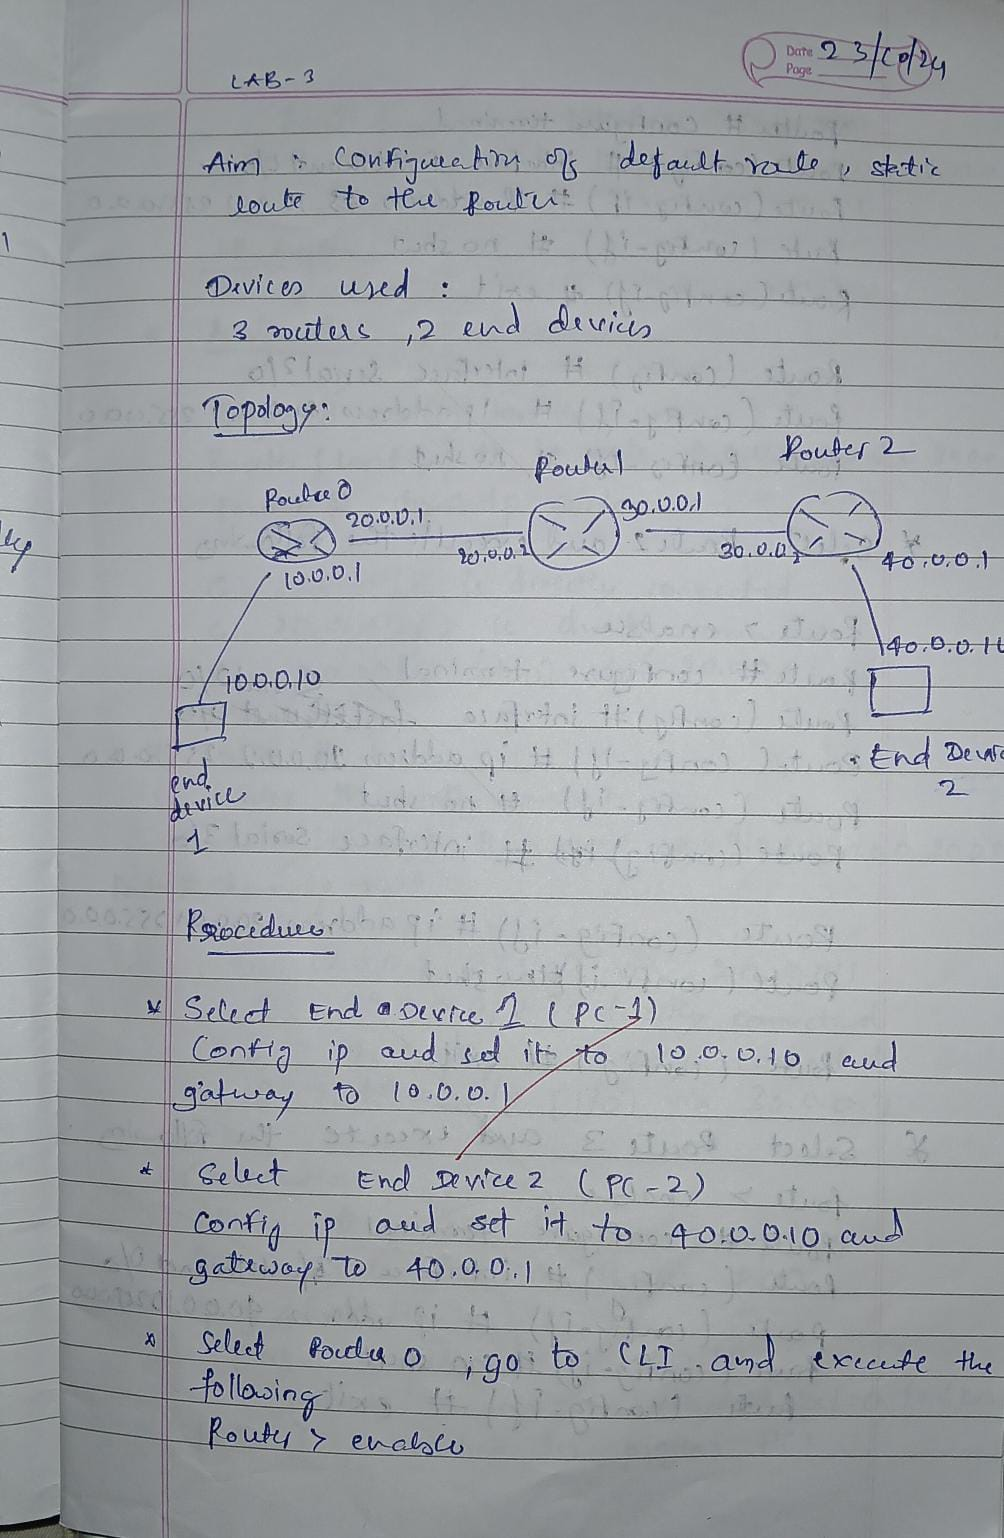 LAB-3
Date 23/10/24
Page
Aim : Configuration of default route, static
route to the Router:
Devices used :
3 routers, 2 end devices
Topology:
Router 0
Router 1
Router 2
20.0.0.1
20.0.0.2
30.0.0.1
30.0.0.2
10.0.0.1
40.0.0.1
10.0.0.10
40.0.0.10
end
device
1
End Device
2
Procedure
* Select End Device 1 (PC-1)
Config ip and set it to 10.0.0.10 and
gatway to 10.0.0.1
* Select End Device 2 (PC-2)
Config ip and set it to 40.0.0.10 and
gateway to 40.0.0.1
* Select Router 0, go to CLI and execute the
following
Router > enable